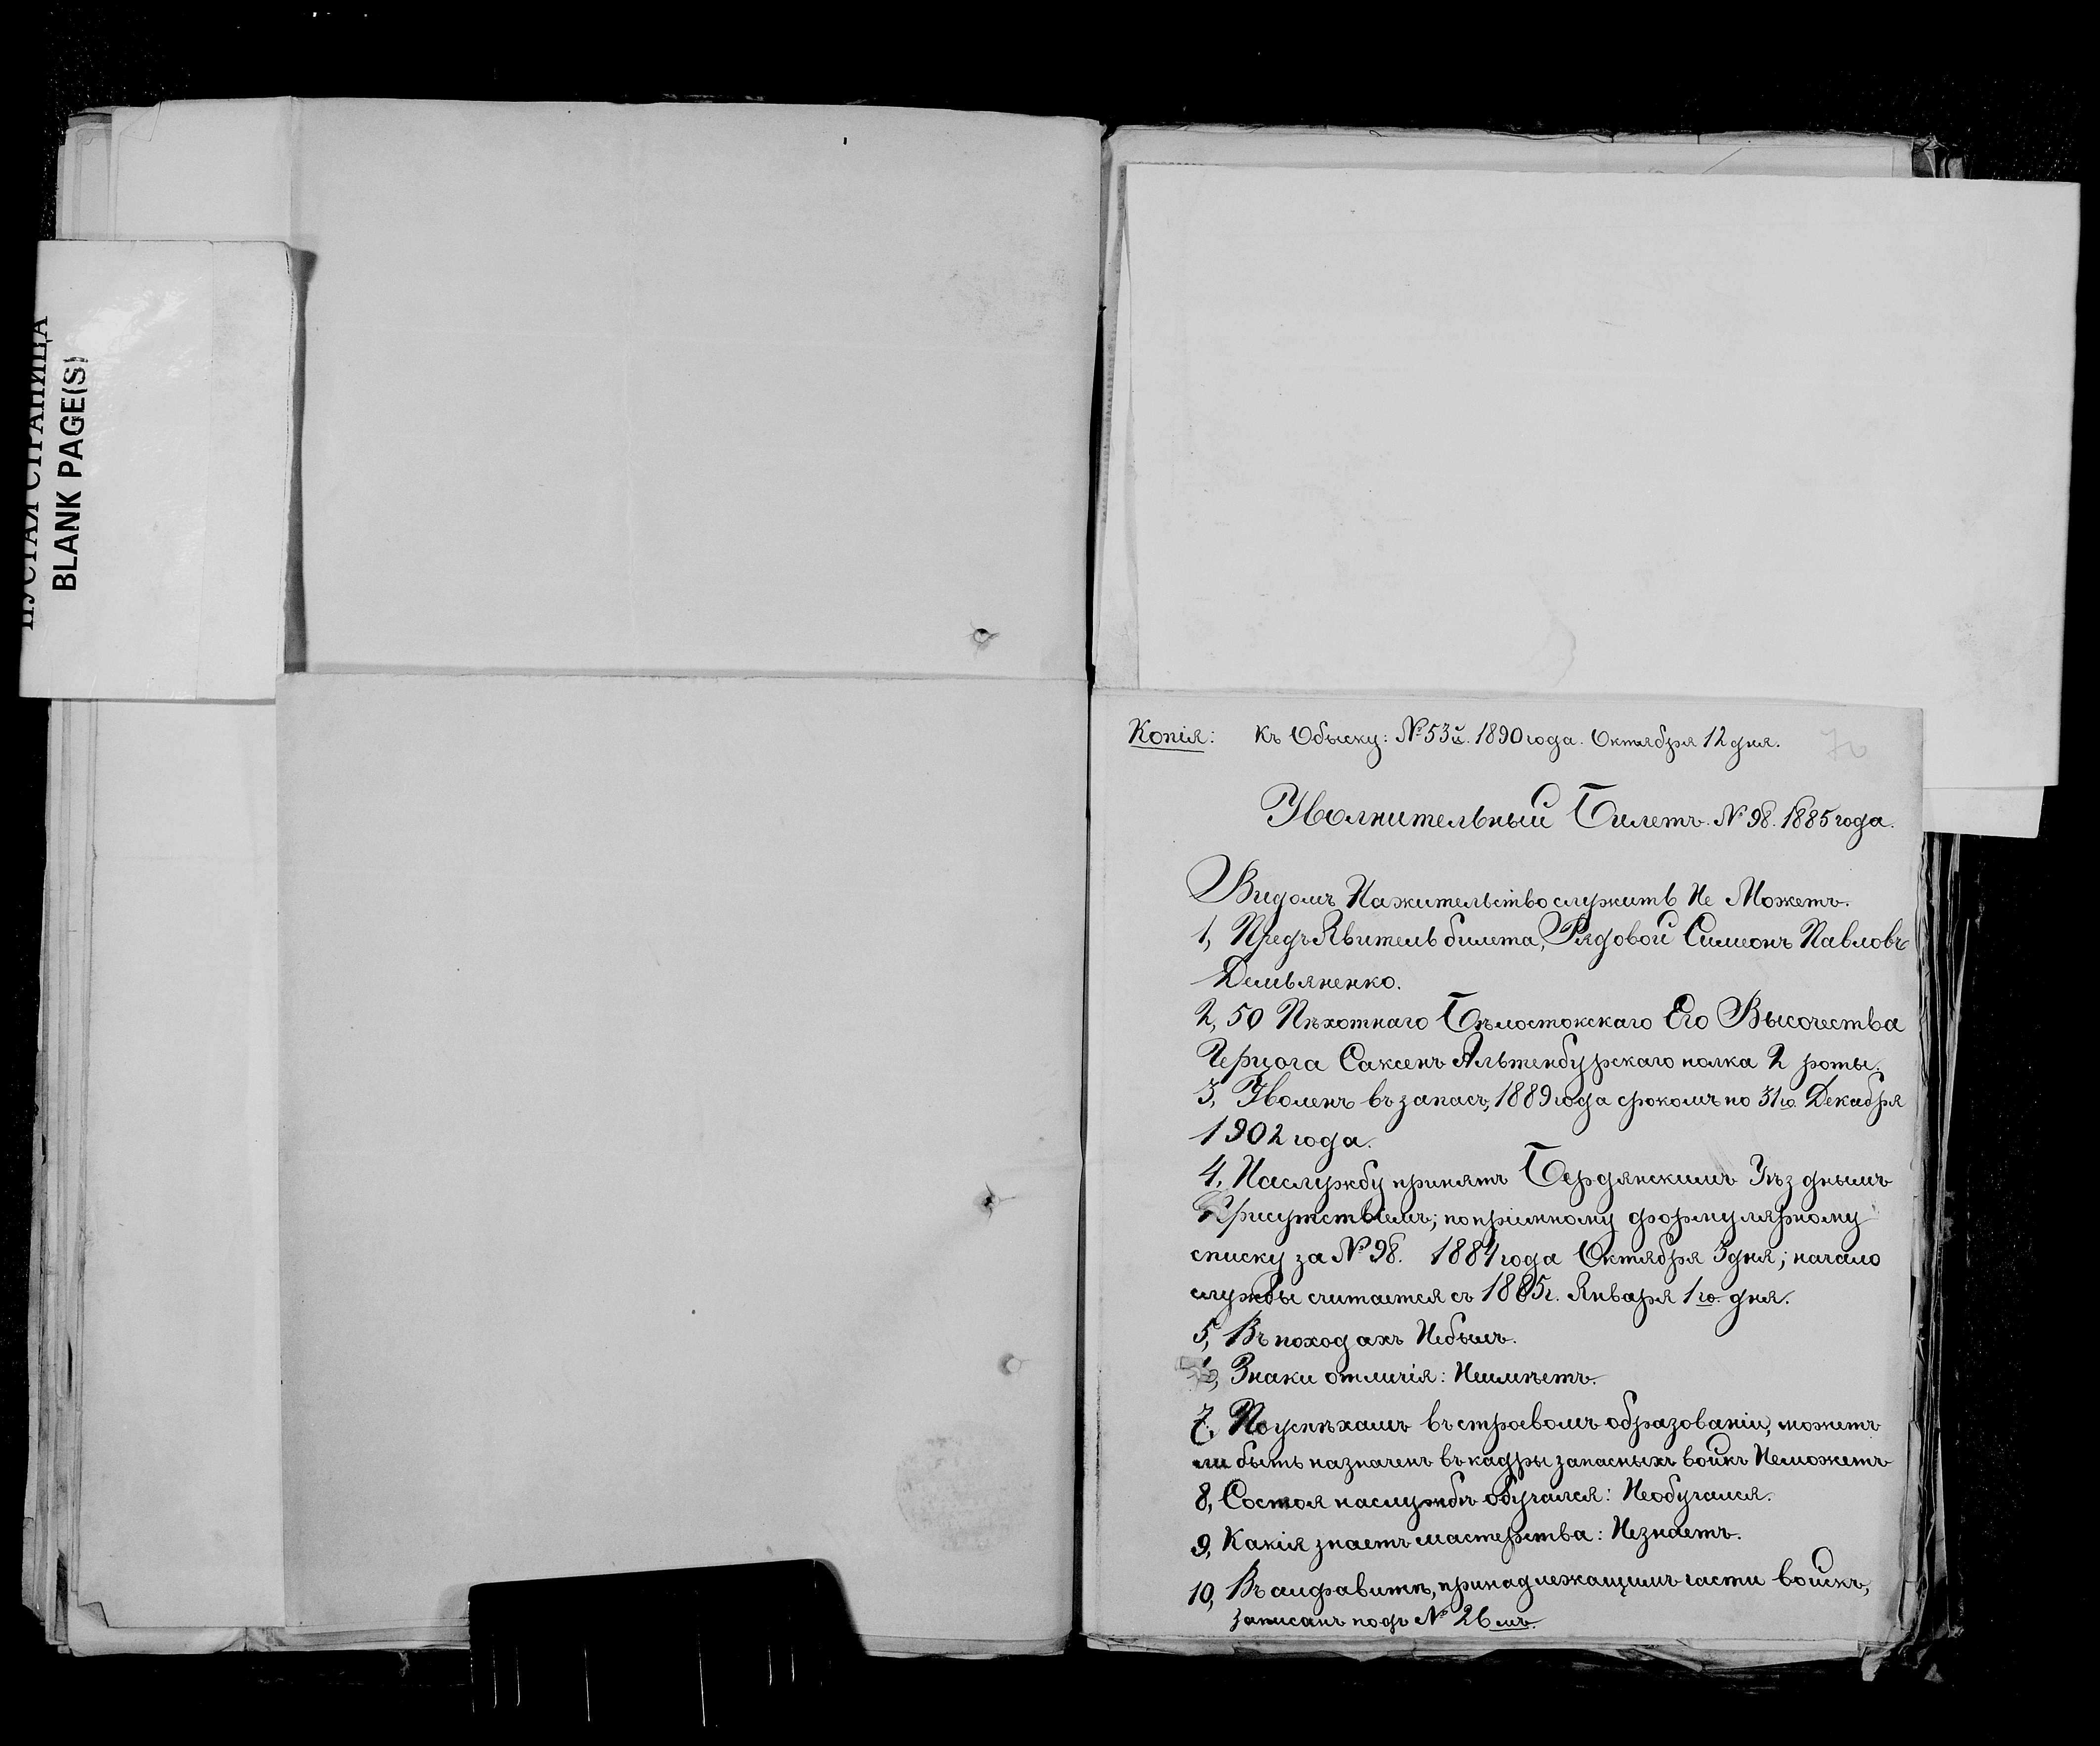 ПУСТАЯ СТРАНИЦА
BLANK PAGE(S)
Копія: Къ Обыску: № 53й. 1890 года. Октября 12 дня.
70
Уволнительный Билетъ. № 98. 1885 года.
Видомъ Нажительство служить Не Можетъ.
1, Предъявитель билета, Рядовой Симеонъ Павловъ
Демьяненко.
2, 50 Пѣхотнаго Бѣлостокскаго Его Высочества
Герцога Саксенъ Альтенбургскаго полка 2 роты.
3, Уволенъ въ запасъ, 1889 года срокомъ по 31го Декабря
1902 года.
4, Наслужбу принятъ Бердянскимъ Уѣзднымъ
Присутствіемъ; попріемному формулярному
списку за № 98. 1884 года Октября 3 дня; начало
службы считается съ 1885 г. Января 1го дня.
5, Въ походахъ Небылъ.
6, Знаки отличія: Неимѣетъ.
7, По успѣхамъ въ строевомъ образованіи, можетъ
ли быть назначенъ въ кадры запасныхъ войскъ Неможетъ
8, Состоя наслужбѣ обучался: Необучался.
9, Какія знаетъ мастерства: Незнаетъ.
10, Въ алфавитѣ, принадлежащимъ части войскъ,
записанъ подъ № 26мъ.